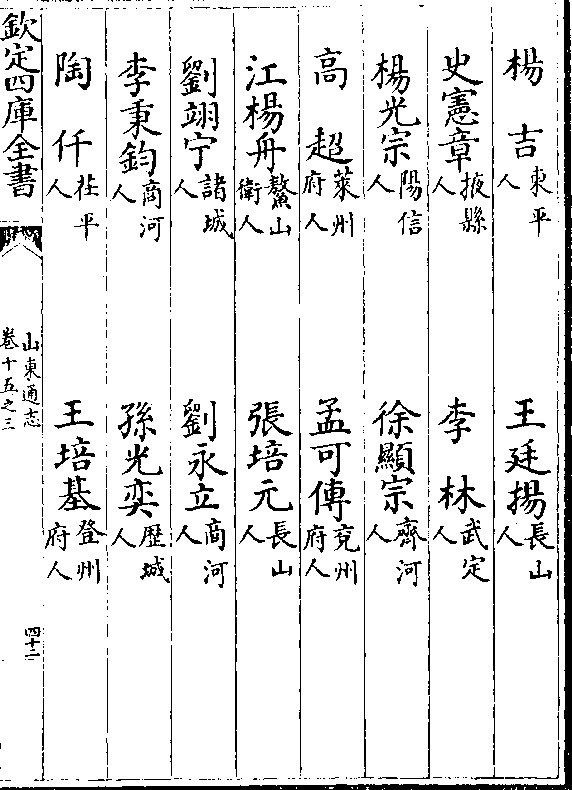 楊吉東平人　王廷揚長山人
史憲章掖縣人　李林武定人
楊光宗陽信人　徐顯宗齊河人
高超萊州府人　孟可傳兗州府人
江楊舟鰲山衛人　張培元長山人
劉翊宁諸城人　劉永立商河人
李秉鈞商河人　孫光奕歷城人
陶仟茌平人　王培基登州府人
欽定四庫全書
山東通志
卷十五之三
四十二